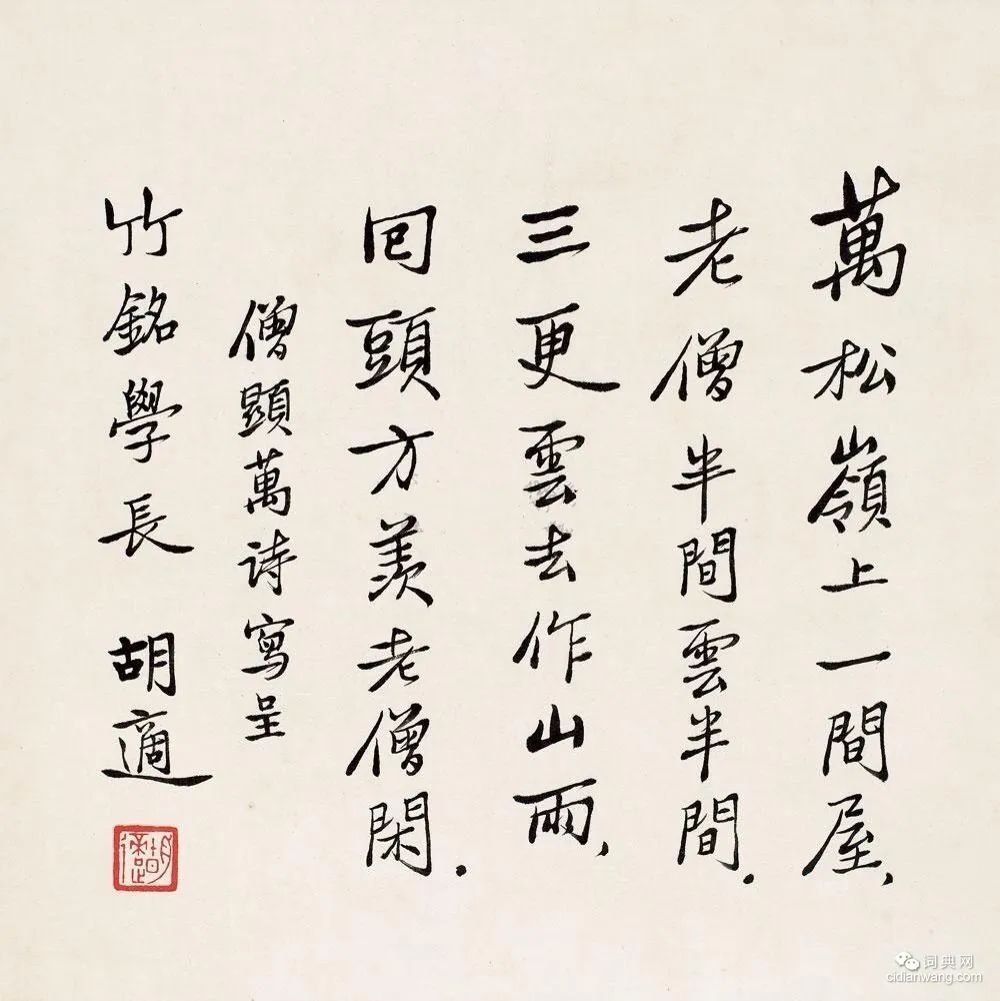 萬松嶺上一間屋、
老僧半間雲半間.
三更雲去作山雨、
回頭方羨老僧閑.
僧顯萬詩寫呈
竹銘學長 胡適
胡適
词典网
cidianwang.com